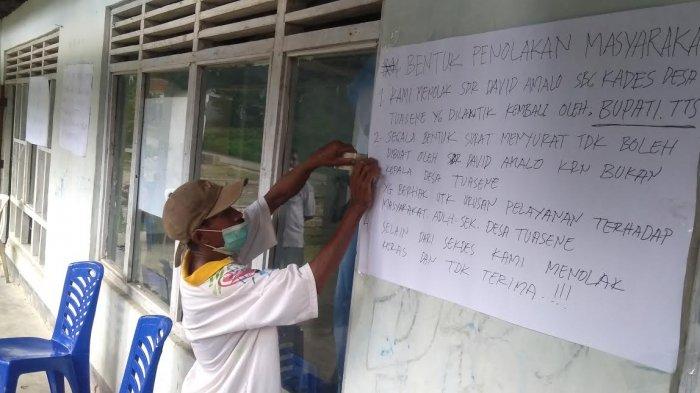 BENTUK PENOLAKAN MASYARAKA
1. KAMI MENOLAK SDR DAVID AMALO SBG KADES DESA
TUASENE YG DILANTIK KEMBALI OLEH, BUPATI. TTS
2. SEGALA BENTUK SURAT MENYURAT TDK BOLEH
DIBUAT OLEH SDR DAVID AMALO KRN BUKAN
KEPALA DESA TUASENE
YG BERHAK UTK URUSAN PELAYANAN TERHADAP
MASYARAKAT. ADLH. SEK. DESA TUASENE
SELAIN DARI SEKDES KAMI MENOLAK
KERAS DAN TDK TERIMA...!!!